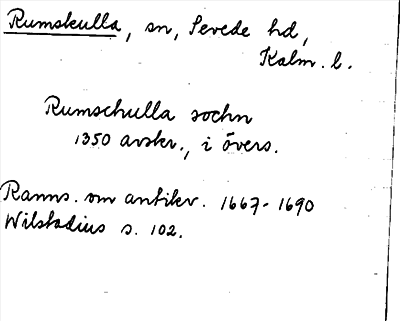 Rumskulla, sn, Sevede hd,
Kalm. l.
Rumschulla sochn
1350 avskr., i övers.
Ranns. om antikv. 1667-1690
Wilstadius s. 102.